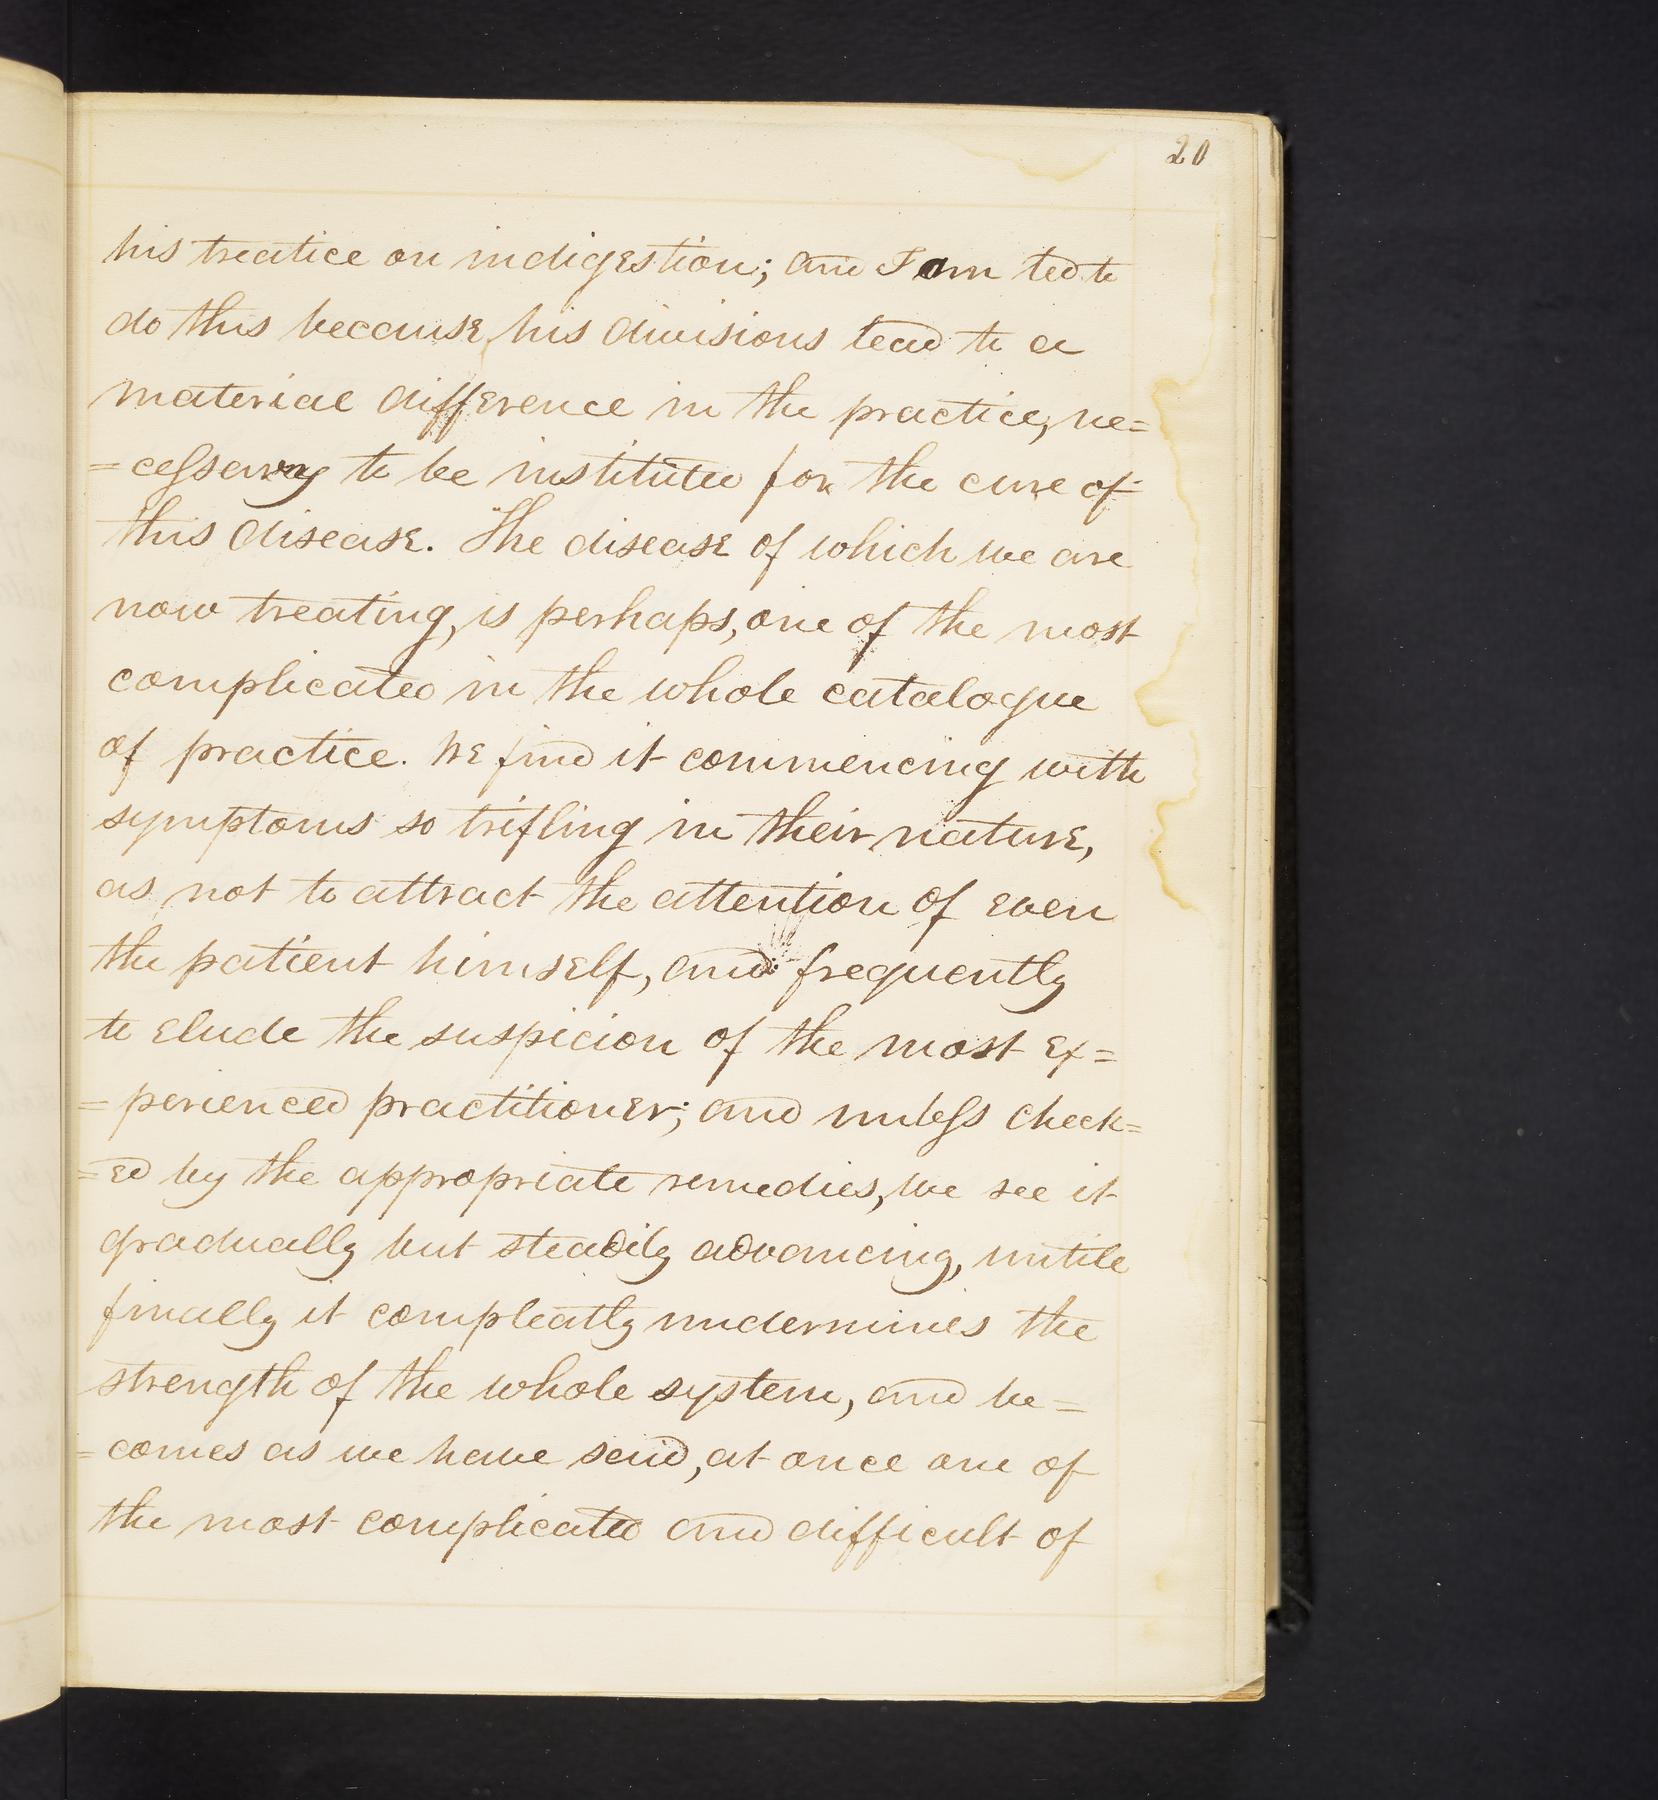 20
his treatice on indigestion; and I am led to
do this because, his divisions lead to a
material difference in the practice, ne=
=cessary to be instituted for the cure of
this disease. The disease of which we are
now treating, is perhaps, one of the most
complicated in the whole catalogue
of practice. We find it commencing with
symptoms so trifling in their nature,
as not to attract the attention of even
the patient himself, and frequently
to elude the suspicion of the most ex=
=perienced practitioner; and unless check=
=ed by the appropriate remedies, we see it
gradually but steadily advancing, untile
finally it compleatly undermines the
strength of the whole system, and be=
=comes as we have said, at once one of
the most complicated and difficult of